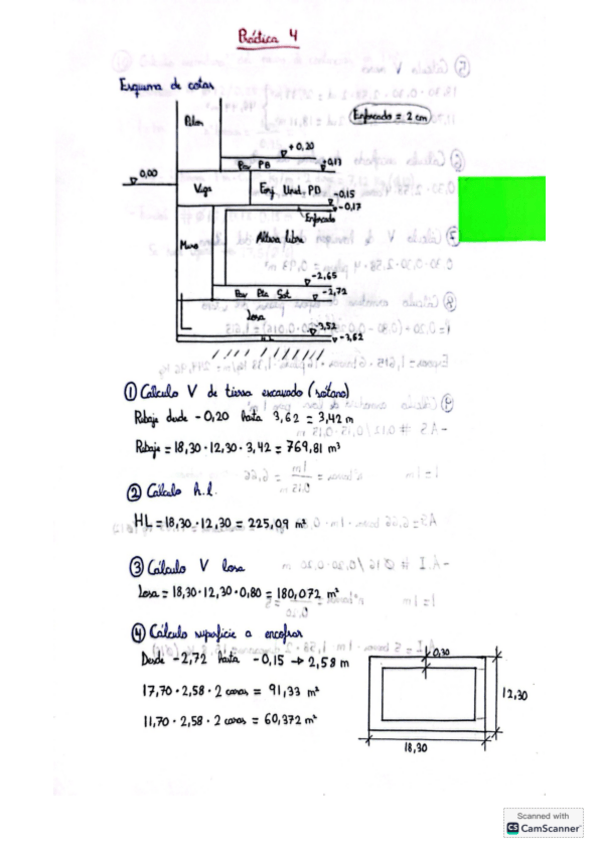 Práctica 4
Esquema de cotas
Enfoscado = 2 cm
Pilar
+0,20
Pav PB
+0,13
0,00
Viga
Forj. Unid. PB
-0,15
-0,17
Enfoscado
Muro
Altura libre
-2,65
Pav Pta Sot
-2,72
Losa
-3,52
H.L
-3,62
① Cálculo V de tierra excavado (sótano)
Rebaje desde -0,20 hasta 3,62 = 3,42 m
Rebaje = 18,30·12,30·3,42 = 769,81 m³
② Cálculo h.l.
HL = 18,30·12,30 = 225,09 m²
③ Cálculo V losa
Losa = 18,30·12,30·0,80 = 180,072 m³
④ Cálculo superficie a encofrar
Desde -2,72 hasta -0,15 → 2,58 m
0,30
17,70·2,58·2 caras = 91,33 m²
12,30
11,70·2,58·2 caras = 60,372 m²
18,30
Scanned with
CS CamScanner